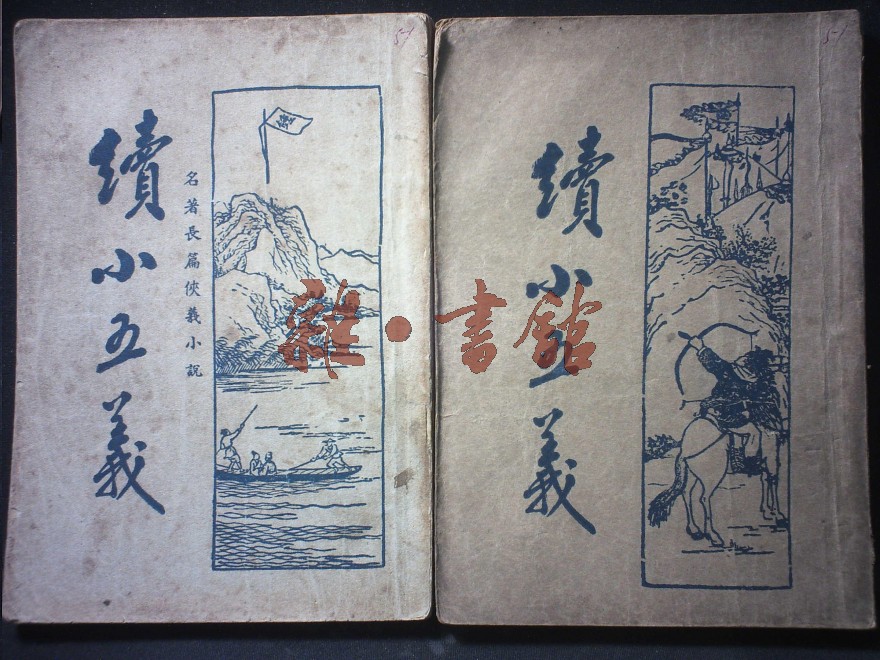 續小五義
名著長篇俠義小說
續小五義
雜·書館
51
51